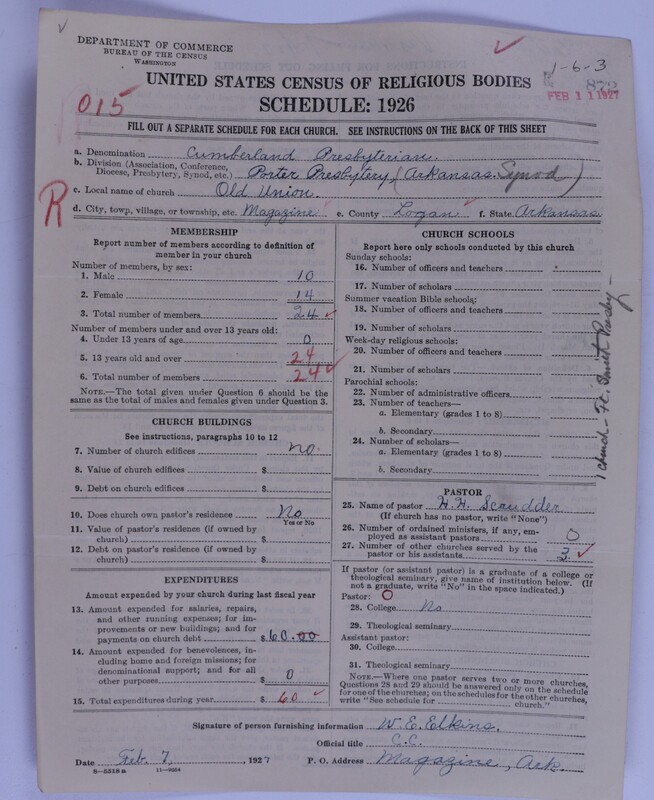 DEPARTMENT OF COMMERCE
BUREAU OF THE CENSUS
WASHINGTON
1-6-3
872
FEB 11 1927
UNITED STATES CENSUS OF RELIGIOUS BODIES
SCHEDULE: 1926
015
FILL OUT A SEPARATE SCHEDULE FOR EACH CHURCH. SEE INSTRUCTIONS ON THE BACK OF THIS SHEET
a. Denomination Cumberland Presbyterian.
b. Division (Association, Conference, Diocese, Presbytery, Synod, etc.) Porter Presbytery, (Arkansas Synod)
R
c. Local name of church Old Union.
d. City, town, village, or township, etc. Magazine e. County Logan f. State Arkansas
MEMBERSHIP
Report number of members according to definition of
member in your church
Number of members, by sex:
1. Male 10
2. Female 14
3. Total number of members 24
Number of members under and over 13 years old:
4. Under 13 years of age 0
5. 13 years old and over 24
6. Total number of members 24
NOTE.—The total given under Question 6 should be
the same as the total of males and females given under Question 3.
CHURCH BUILDINGS
See instructions, paragraphs 10 to 12
7. Number of church edifices no.
8. Value of church edifices $
9. Debt on church edifices $
10. Does church own pastor's residence No
Yes or No
11. Value of pastor's residence (if owned by
church) $
12. Debt on pastor's residence (if owned by
church) $
EXPENDITURES
Amount expended by your church during last fiscal year
13. Amount expended for salaries, repairs,
and other running expenses; for im-
provements or new buildings; and for
payments on church debt $60.00
14. Amount expended for benevolences, in-
cluding home and foreign missions; for
denominational support; and for all
other purposes $ 0
15. Total expenditures during year $ 60
CHURCH SCHOOLS
Report here only schools conducted by this church
Sunday schools:
16. Number of officers and teachers
17. Number of scholars
Summer vacation Bible schools:
18. Number of officers and teachers
19. Number of scholars
Week-day religious schools:
20. Number of officers and teachers
21. Number of scholars
Parochial schools:
22. Number of administrative officers
23. Number of teachers—
a. Elementary (grades 1 to 8)
b. Secondary
24. Number of scholars—
a. Elementary (grades 1 to 8)
b. Secondary
1 church - Ft. Smith Presby -
PASTOR
25. Name of pastor H. H. Scudder
(If church has no pastor, write "None")
26. Number of ordained ministers, if any, em-
ployed as assistant pastors 0
27. Number of other churches served by the
pastor or his assistants 3
If pastor (or assistant pastor) is a graduate of a college or
theological seminary, give name of institution below. (If
not a graduate, write "No" in the space indicated.)
Pastor: O
28. College No
29. Theological seminary
Assistant pastor:
30. College
31. Theological seminary
NOTE.—Where one pastor serves two or more churches,
Questions 28 and 29 should be answered only on the schedule
for one of the churches; on the schedules for the other churches,
write "See schedule for church."
Signature of person furnishing information W. E. Elkins.
Official title C.C.
Date Feb. 7, 1927 P. O. Address Magazine, Ark.
8—5518a 11—9304